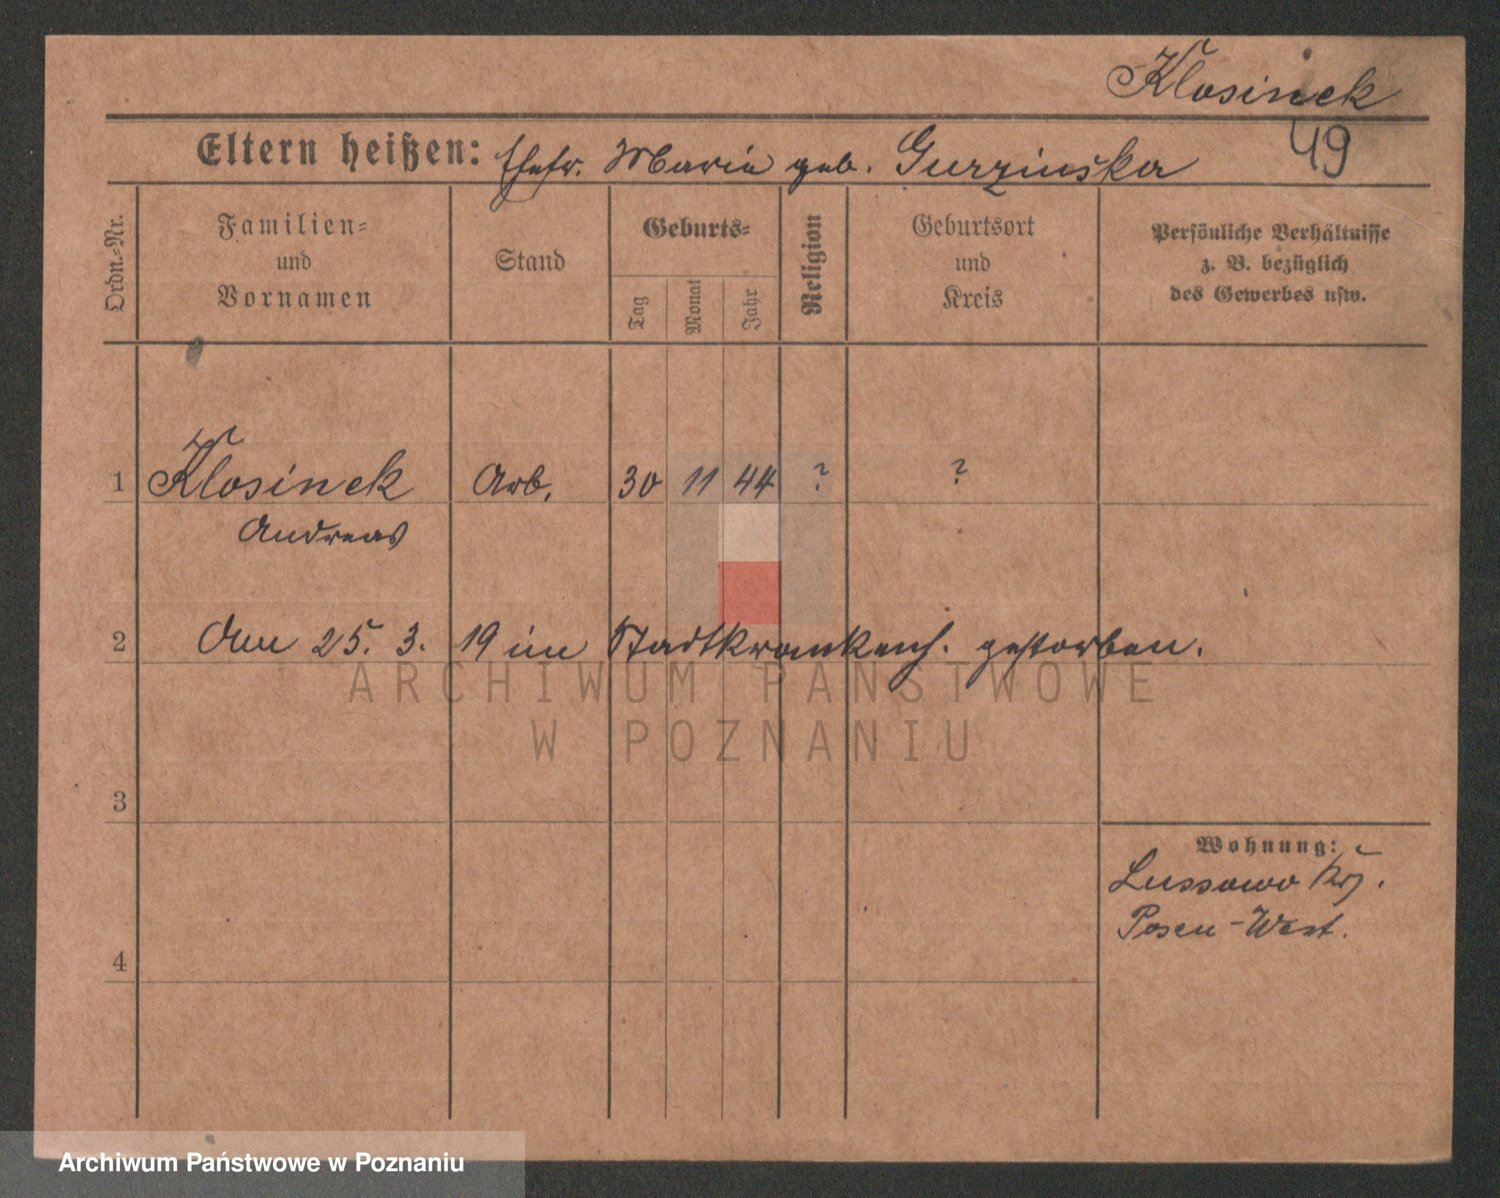 Klosinek
49
Eltern heißen: Ehefr. Marie geb. Gurzinska
Ordn.-Nr.
Familien-
und
Vornamen
Stand
Geburts-
Tag
Monat
Jahr
Religion
Geburtsort
und
Kreis
Persönliche Verhältnisse
z. B. bezüglich
des Gewerbes usw.
1 Klosinek Arb. 30 11 44 ? ?
Andreas
2 Am 25. 3. 19 im Stadtkrankenh. gestorben.
ARCHIWUM PAŃSTWOWE
W POZNANIU
3
Wohnung:
Lussowo Krs.
Posen-West.
4
Archiwum Państwowe w Poznaniu